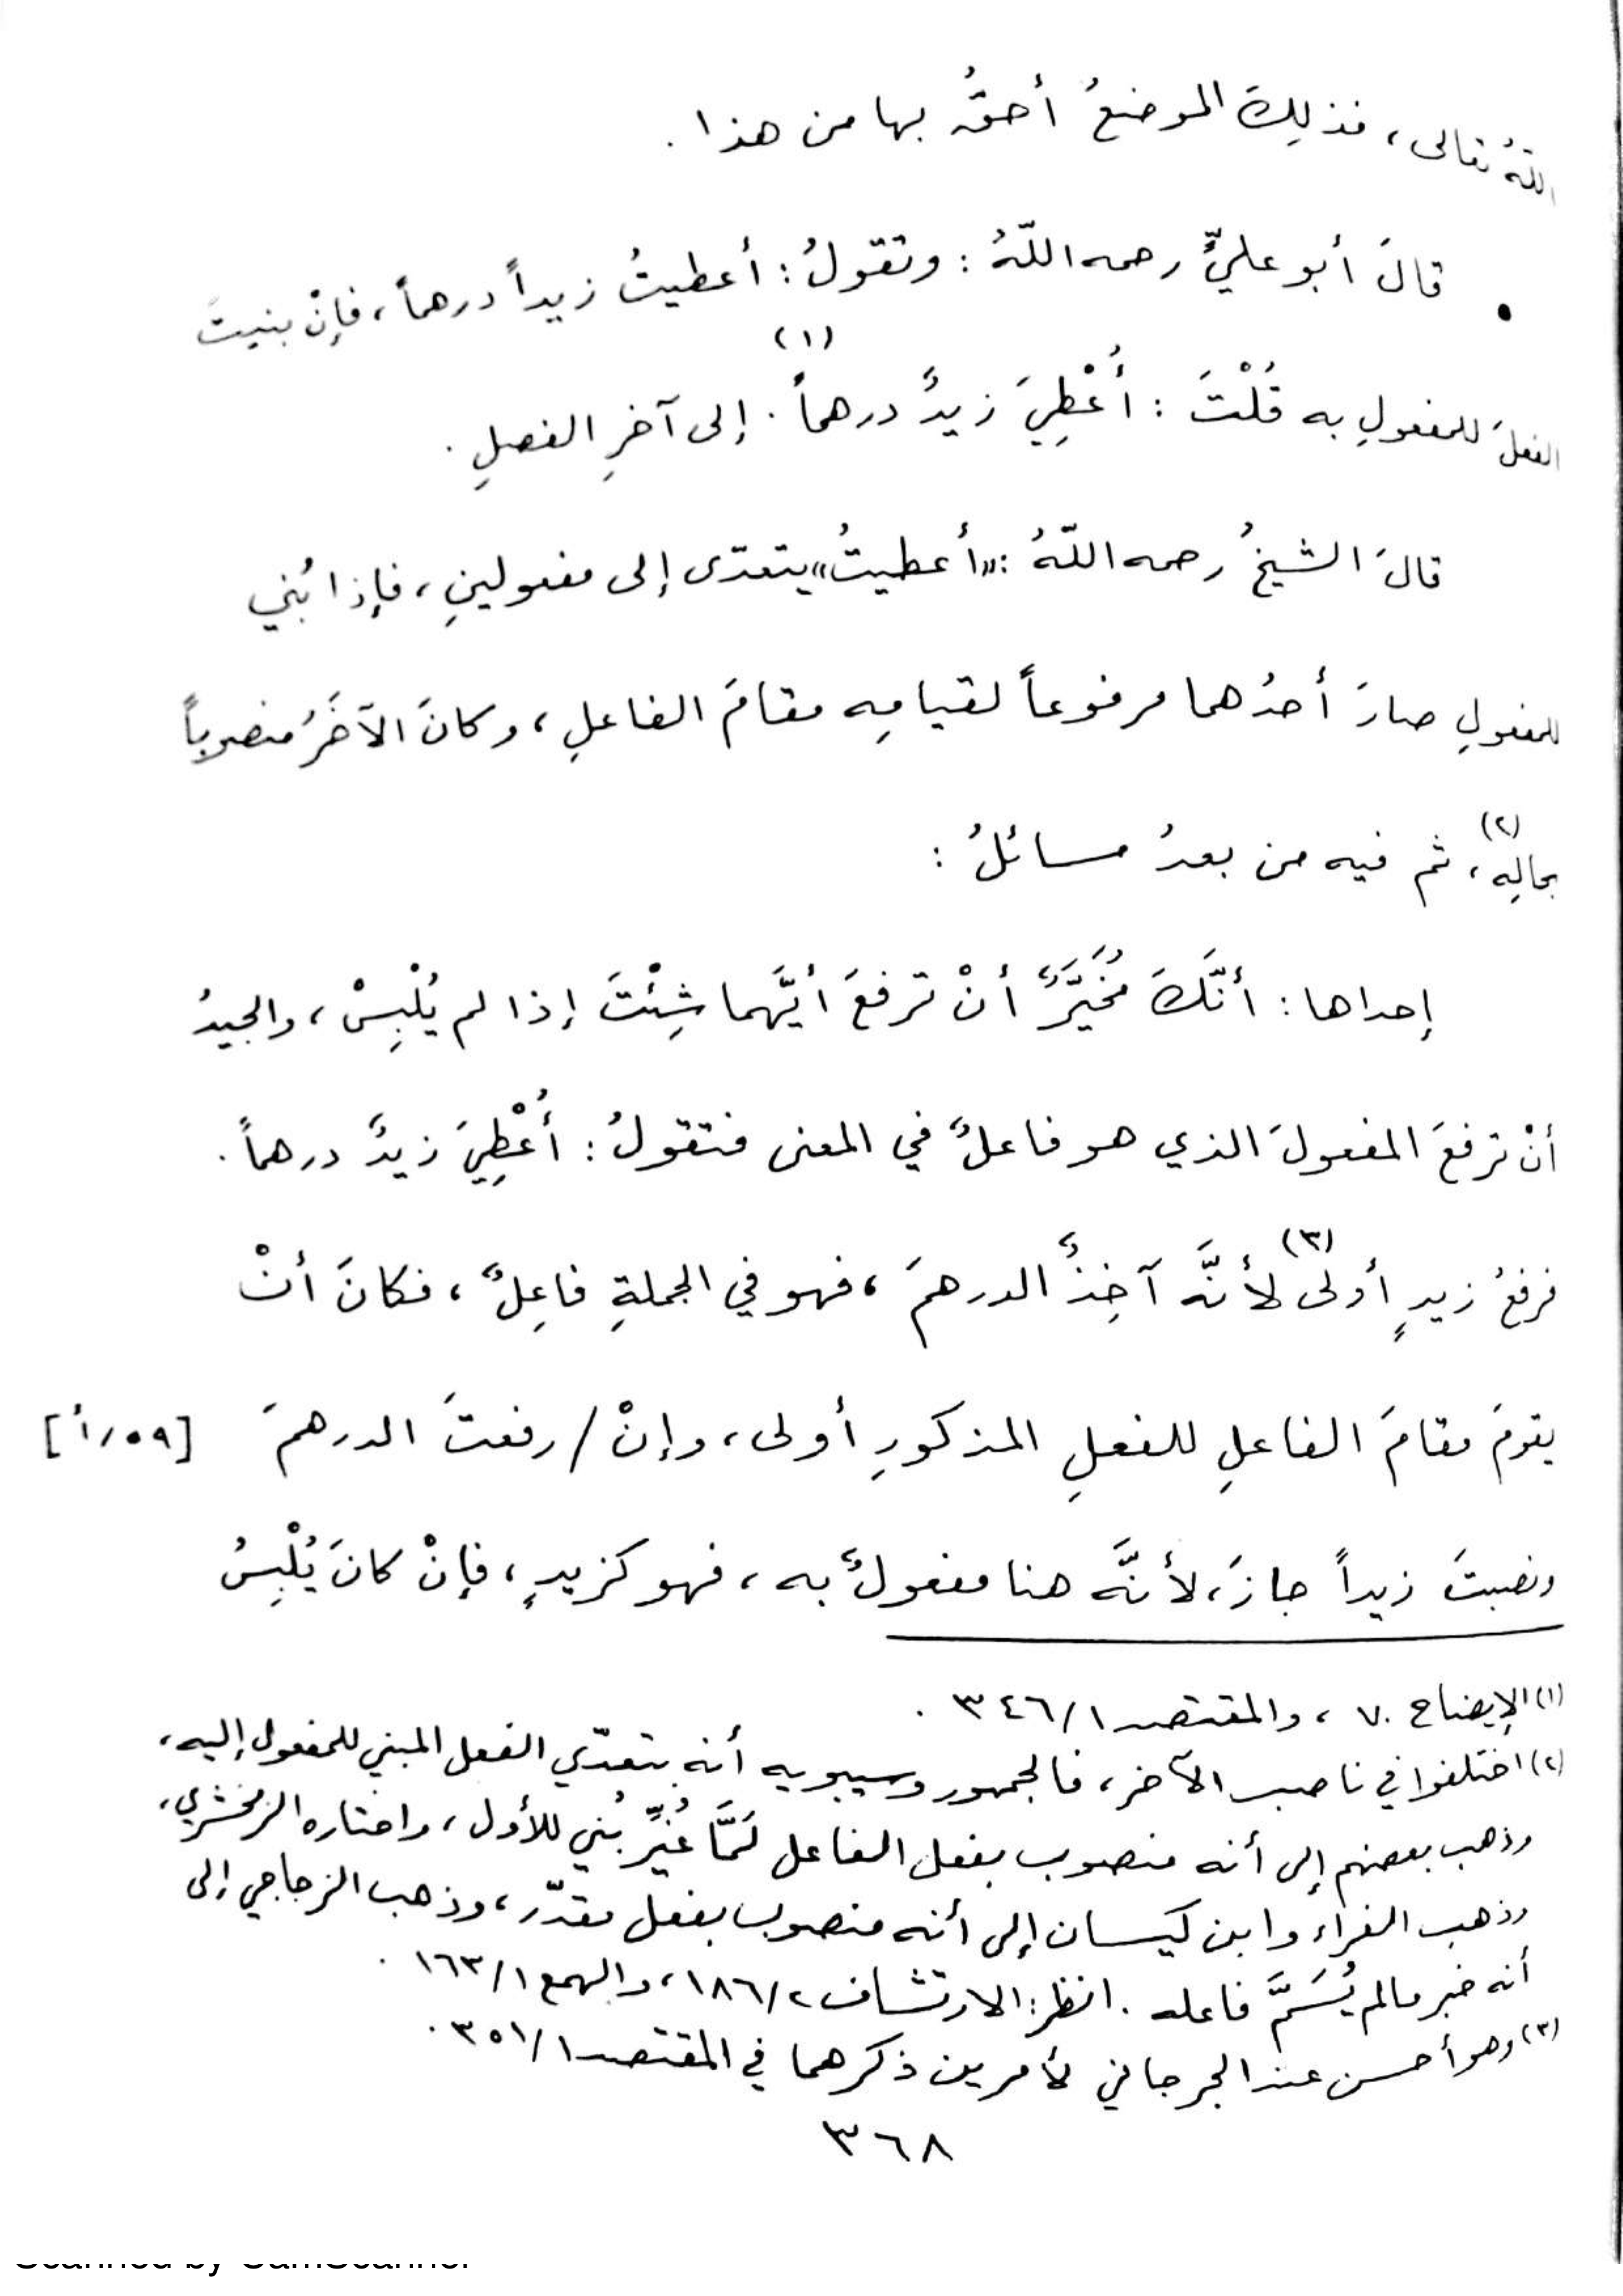 اللّهُ تعالى، فذلِكَ الموضعُ أحقُّ بها من هذا.
• قالَ أبو عليٍّ رحمه اللّهُ: وتقولُ: أعطيتُ زيداً درهماً، فإنْ بنيتَ
الفعلَ للمفعولِ به قُلْتَ: أُعْطِيَ زيدٌ درهماً(١). إلى آخرِ الفصلِ.
قالَ الشيخُ رحمه اللّهُ: «أعطيتُ» يتعدّى إلى مفعولينِ، فإذا بُني
للمفعولِ صارَ أحدُهما مرفوعاً لقيامِه مقامَ الفاعلِ، وكانَ الآخَرُ منصوباً
بحالِه(٢)، ثم فيه من بعدُ مسائلُ:
إحداها: أنّكَ مُخَيَّرٌ أنْ ترفعَ أيَّهما شِئْتَ إذا لم يُلْبِسْ، والجيدُ
أنْ ترفعَ المفعولَ الذي هو فاعلٌ في المعنى فتقولُ: أُعْطِيَ زيدٌ درهماً.
فرفعُ زيدٍ أولى(٣) لأنَّه آخِذٌ الدرهمَ، فهو في الجملةِ فاعِلٌ، فكانَ أنْ
يقومَ مقامَ الفاعلِ للفعلِ المذكورِ أولى، وإنْ / رفعتَ الدرهمَ [٥٩/أ]
ونصبتَ زيداً جازَ، لأنَّه هنا مفعولٌ به، فهو كزيدٍ، فإنْ كانَ يُلْبِسُ
(١) الإيضاح ٧٠، والمقتصد ٣٤٦/١.
(٢) اختلفوا في ناصب الآخر، فالجمهور وسيبويه أنه بتعدّي الفعل المبني للمفعول إليه،
وذهب بعضهم إلى أنه منصوب بفعل الفاعل لَمَّا غُيِّر بُني للأول، واختاره الزمخشري،
وذهب الفراء وابن كيسان إلى أنه منصوب بفعل مقدّر، وذهب الزجاجي إلى
أنه خبر ما لم يُسَمَّ فاعله. انظر: الارتشاف ١٨٦/٢، والهمع ١٦٣/١.
(٣) وهو أحسن عند الجرجاني لأمرين ذكرهما في المقتصد ٣٥١/١.
٣٦٨
Scanned by CamScanner